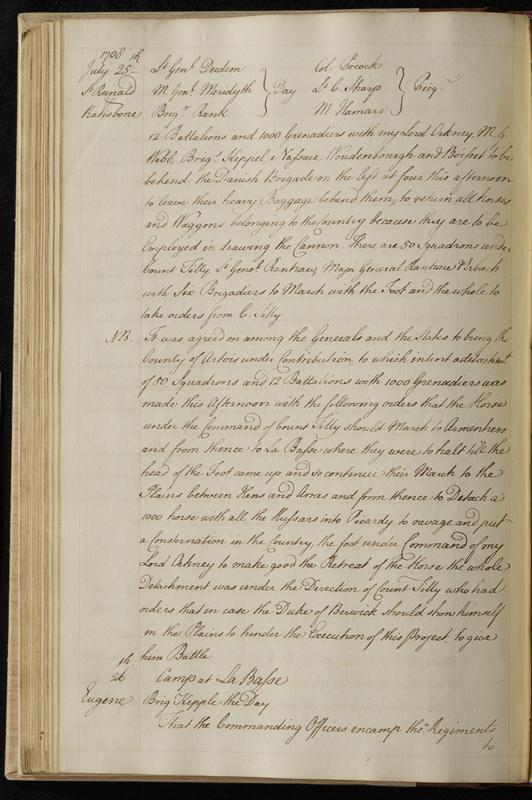 1708
July 25th Lt Genl Dedem Col. Pocock
St Rainald M. Genl Meredyth } Day Lt C. Sharp } Picqt
Ratisbone Brigr Rank M Hamars
12 Battalions and 1000 Grenadiers with my Lord Orkney, M. G.
Webb, Brigr. Keppel, Nassau, Woudenbourgh and Boisset to be
behind the Danish Brigade on the left at four this afternoon
to leave their heavy Baggage behind them, to return all horses
and Waggons belonging to the Country because they are to be
Employed in drawing the Cannon. There are 50 Squadrons under
Count Tilly, Lt Genl. Rantzaw, Major General Rantzaw & Erbach
with Six Brigadiers to March with the Foot and the whole to
take orders from C. Tilly
NB. It was agreed on among the Generals and the States to bring the
County of Artois under Contribution to which intent a detachmt.
of 50 Squadrons and 12 Battalions with 1000 Grenadiers was
made this Afternoon with the following orders that the Horse
under the Command of Count Tilly should March to Armentiers
and from thence to La Basse where they were to halt till the
head of the Foot came up and so continue their March to the
Plains between Lens and Arras and from thence to Detach a
1000 horse with all the Hussars into Picardy to ravage and put
a Consternation in the Country, the foot under Command of my
Lord Orkney to make good the Retreat of the Horse the whole
Detachment was under the Direction of Count Tilly who had
orders that in case the Duke of Berwick should shew himself
in the Plains to hinder the Execution of this Project, to give
him Battle
26th Camp at La Basse
Eugene Brig Kepple the Day
That the Commanding Officers encamp their Regiments
to